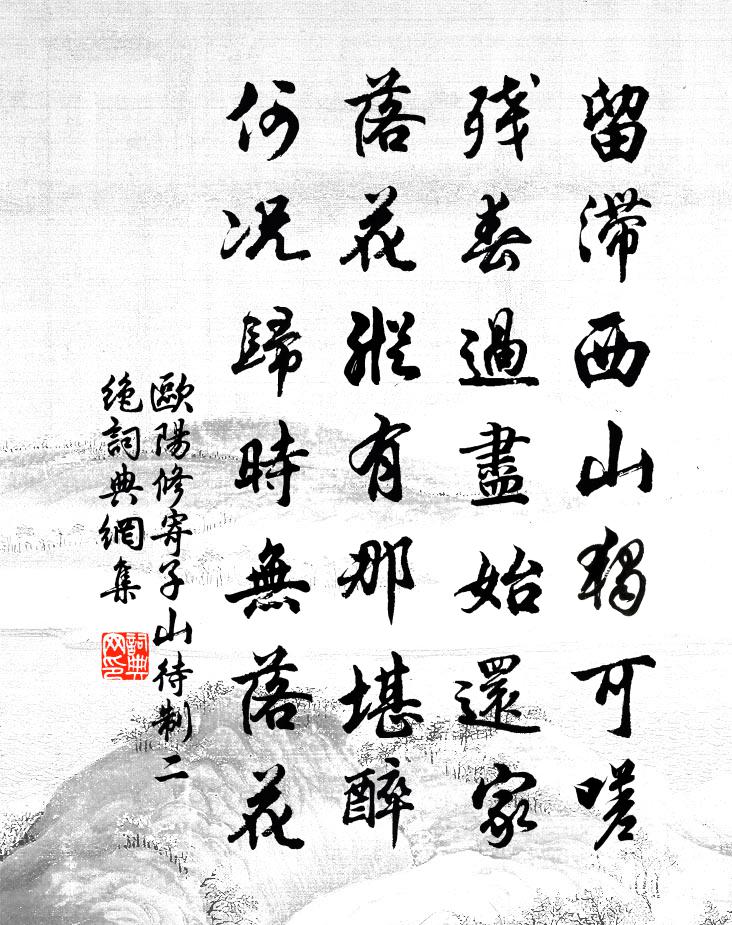 留滞西山獨可嗟
残春過盡始還家
落花縱有那堪醉
何况歸時無落花
歐陽修寄子山待制二
絶詞典網集
詞典
网印